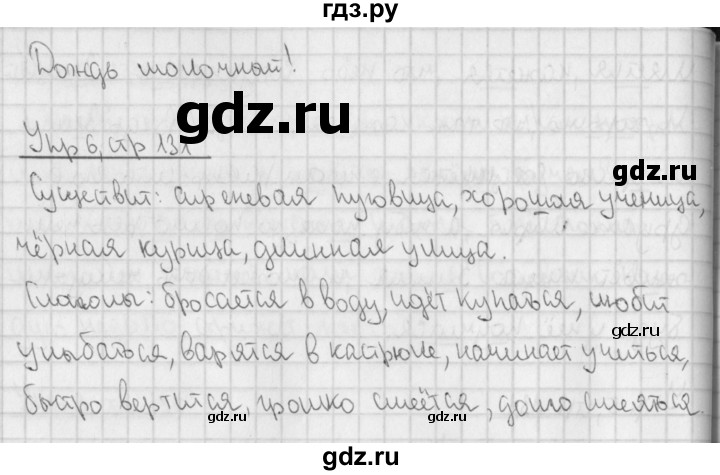 гдз.ру
Дождь молочный!
gdz.ru
Упр 6, стр 131
Существит: сиреневая пуговица, хорошая ученица,
чёрная курица, длинная улица.
gdz.ru
Глаголы: бросается в воду, идёт купаться, любит
gdz.ru
улыбаться, варятся в кастрюле, начинает учиться,
быстро вертится, громко смеётся, долго смеяться.
gdz.ru
gdz.ru
gdz.ru